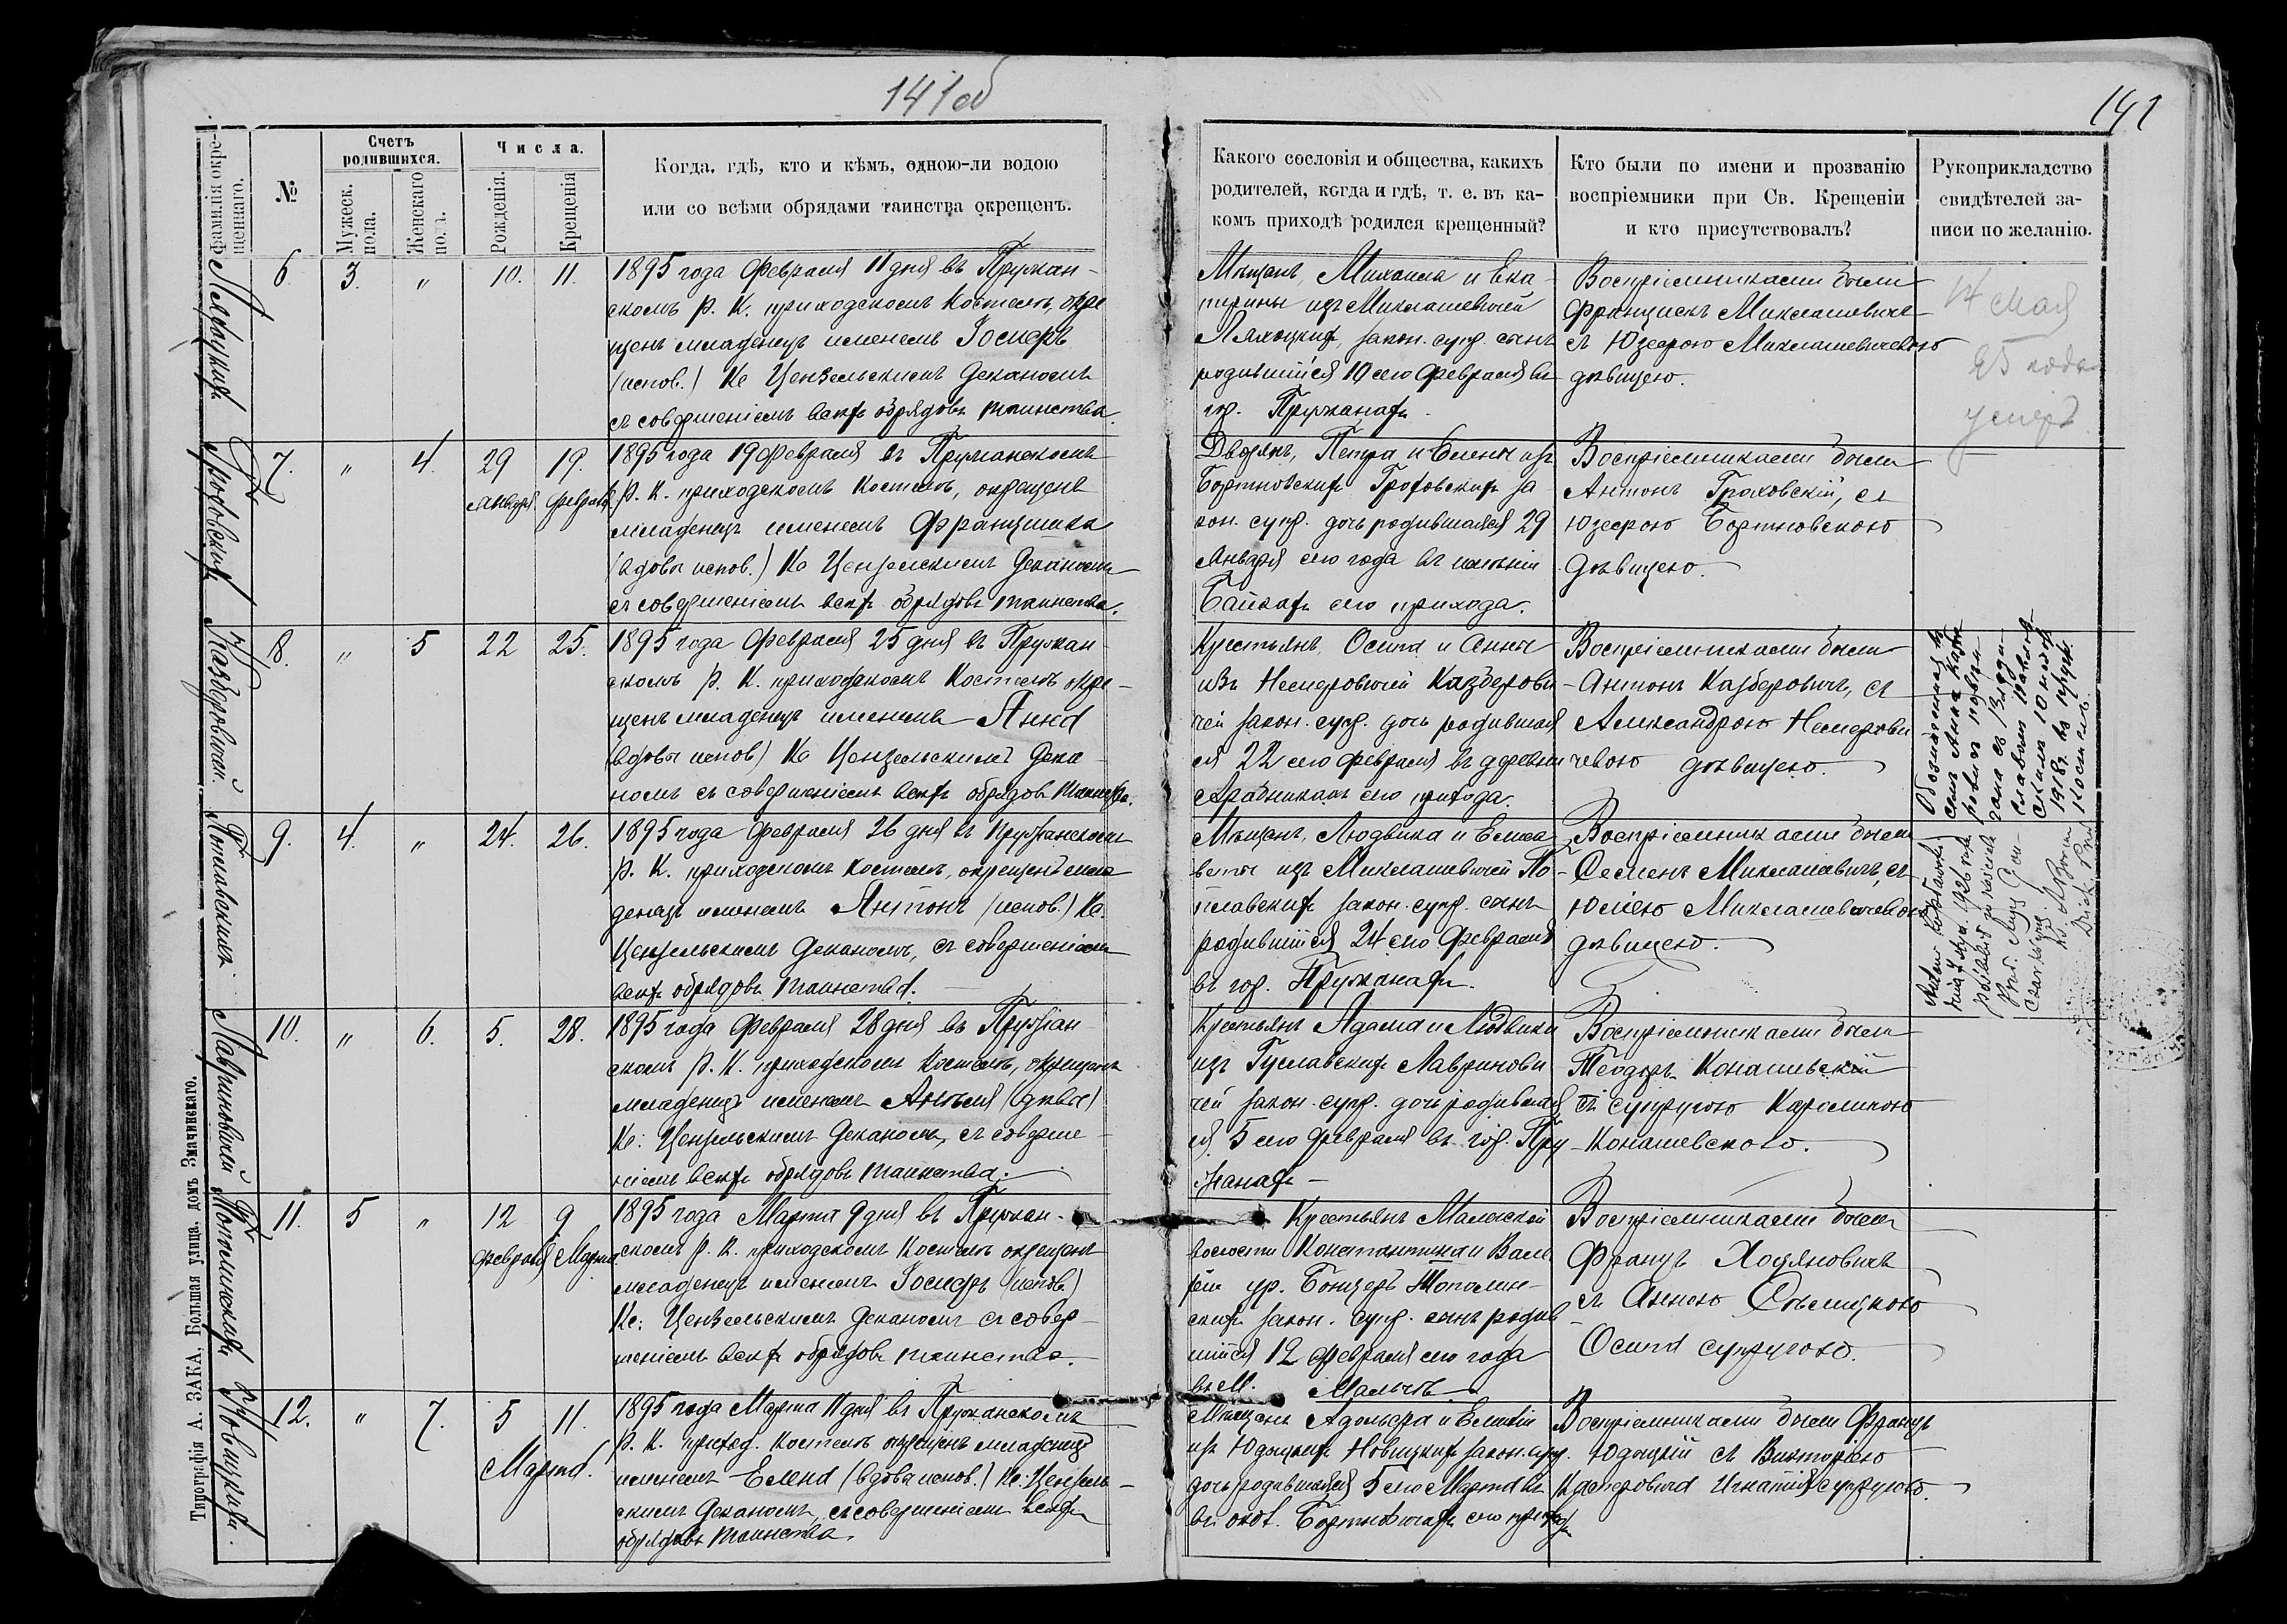 141об
141
фамилія окре-
щеннаго.
№
Счетъ
родившихся.
Мужеск.
пола.
Женскаго
пола.
Числа.
Рожденія.
Крещенія
Когда, гдѣ, кто и кѣмъ, одною-ли водою
или со всѣми обрядами таинства окрещенъ.
Какого сословія и общества, какихъ
родителей, когда и гдѣ, т. е. въ ка-
комъ приходѣ родился крещенный?
Кто были по имени и прозванію
воспріемники при Св. Крещеніи
и кто присутствовалъ?
Рукоприкладство
свидѣтелей за-
писи по желанію.
6.
3.
"
10.
11.
1895 года Февраля 11 дня въ Пружан-
скомъ Р. К. приходскомъ Костелѣ, окре
щенъ младенецъ именемъ Iосифъ
(испов.) Кс Цензельскимъ Деканомъ
съ совершеніемъ всѣхъ обрядовъ таинства.
Мѣщанъ, Михаила и Ека-
терины изъ Миклашевичей
закон. супр. сынъ
родившійся 10 сего Февраля въ
гор. Пружанахъ.
Воспріемниками были
Францискъ Миклашевичъ
съ Юзефою Миклашевичевою
дѣвицею.
14 мая
25 года
умеръ
Гроховскихъ
7.
"
4.
29
Января
19.
Февраля
1895 года 19 Февраля въ Пружанскомъ
Р. К. приходскомъ Костелѣ, окрещенъ
младенецъ именемъ Францишка
(вдовы испов.) Кс Цензельскимъ Деканомъ
съ совершеніемъ всѣхъ обрядовъ таинства.
Дворянъ, Петра и Елены изъ
Бортновскихъ Гроховскихъ за
кон. супр. дочь родившаяся 29
Января сего года въ имѣніи
Байкахъ сего прихода.
Воспріемниками были
Антонъ Гроховскій, съ
Юзефою Бортновскою
дѣвицею.
Казберовичей
8.
"
5
22
25.
1895 года Февраля 25 дня въ Пружан
скомъ Р. К. приходскомъ Костелѣ окре-
щенъ младенецъ именемъ Анна
(вдовы испов) Кс Цензельскимъ Дека
номъ съ совершеніемъ всѣхъ обрядовъ таинства.
Крестьянъ, Осипа и Анны
изъ Немеровичей Казберови
чей закон. супр. дочь родившая
ся 22 сего Февраля въ деревни
сего прихода.
Воспріемниками были
Антонъ Казберовичъ, съ
Александрою Немерови
чевою дѣвицею.
1918г.
Костелѣ.
9.
4.
"
24.
26.
1895 года Февраля 26 дня въ Пружанскомъ
Р. К. приходскомъ Костелѣ, окрещенъ мла
денецъ именемъ Антонъ (испов.) Кс.
Цензельскимъ Деканомъ, съ совершеніемъ
всѣхъ обрядовъ таинства.
Мѣщанъ, Людвика и Елиса
веты изъ Миклашевичей По-
закон. супр. сынъ
родившійся 24 сего Февраля
въ гор. Пружанахъ.
Воспріемниками были
Семенъ Миклашевичъ, съ
Юліею Миклашевичевою
дѣвицею.
Лавриновичей
10.
"
6.
5.
28.
1895 года Февраля 28 дня въ Пружан
скомъ Р. К. приходскомъ Костелѣ, окрещенъ
младенецъ именемъ Анѣля (дѣвы)
Кс: Цензельскимъ Деканомъ, съ соверше-
ніемъ всѣхъ обрядовъ таинства.
Крестьянъ Адама и Людвики
изъ Гуславскихъ Лавринови
чей закон. супр. дочь родившая
ся 5 сего Февраля въ гор. Пру
жанахъ-
Воспріемниками были
Теодоръ Конашевскій
съ супругою Каролиною
Конашевскою.
Тополинскихъ
11.
5
"
12
Февраля
9
Марта
1895 года Марта 9 дня въ Пружан-
скомъ Р. К. приходскомъ Костелѣ окрещенъ
младенецъ именемъ Iосифъ (испов.)
Кс: Цензельскимъ Деканомъ съ совер-
шеніемъ всѣхъ обрядовъ таинства.
Крестьянъ Малечской
волости Константина и Вале
ріи ур. Бонцеръ Тополин-
скихъ закон. супр. сынъ родив
шійся 12 Февраля сего года
въ М. Мальчѣ
Воспріемниками были
Францъ Ходяновичъ
съ Анною
Осипа супругою.
Новицкихъ
12.
"
7.
5
11.
Марта.
1895 года Марта 11 дня въ Пружанскомъ
Р. К. приход. Костелѣ окрещенъ младенецъ
именемъ Елена (вдова испов.) Кс. Цензель-
скимъ Деканомъ, съ совершеніемъ всѣхъ
обрядовъ таинства.
Мѣщанъ Адольфа и Емиліи
изъ Юдыцкихъ Новицкихъ закон. супр.
дочь родившаяся 5 сего Марта въ
въ окол. Бортновичахъ сего прихода
Воспріемниками были Францъ
Юдыцкій съ Викторіею
Касперовича Игнатія супругою.
Типографія А. ЗАКА, Большая улица, домъ Змачинскаго.